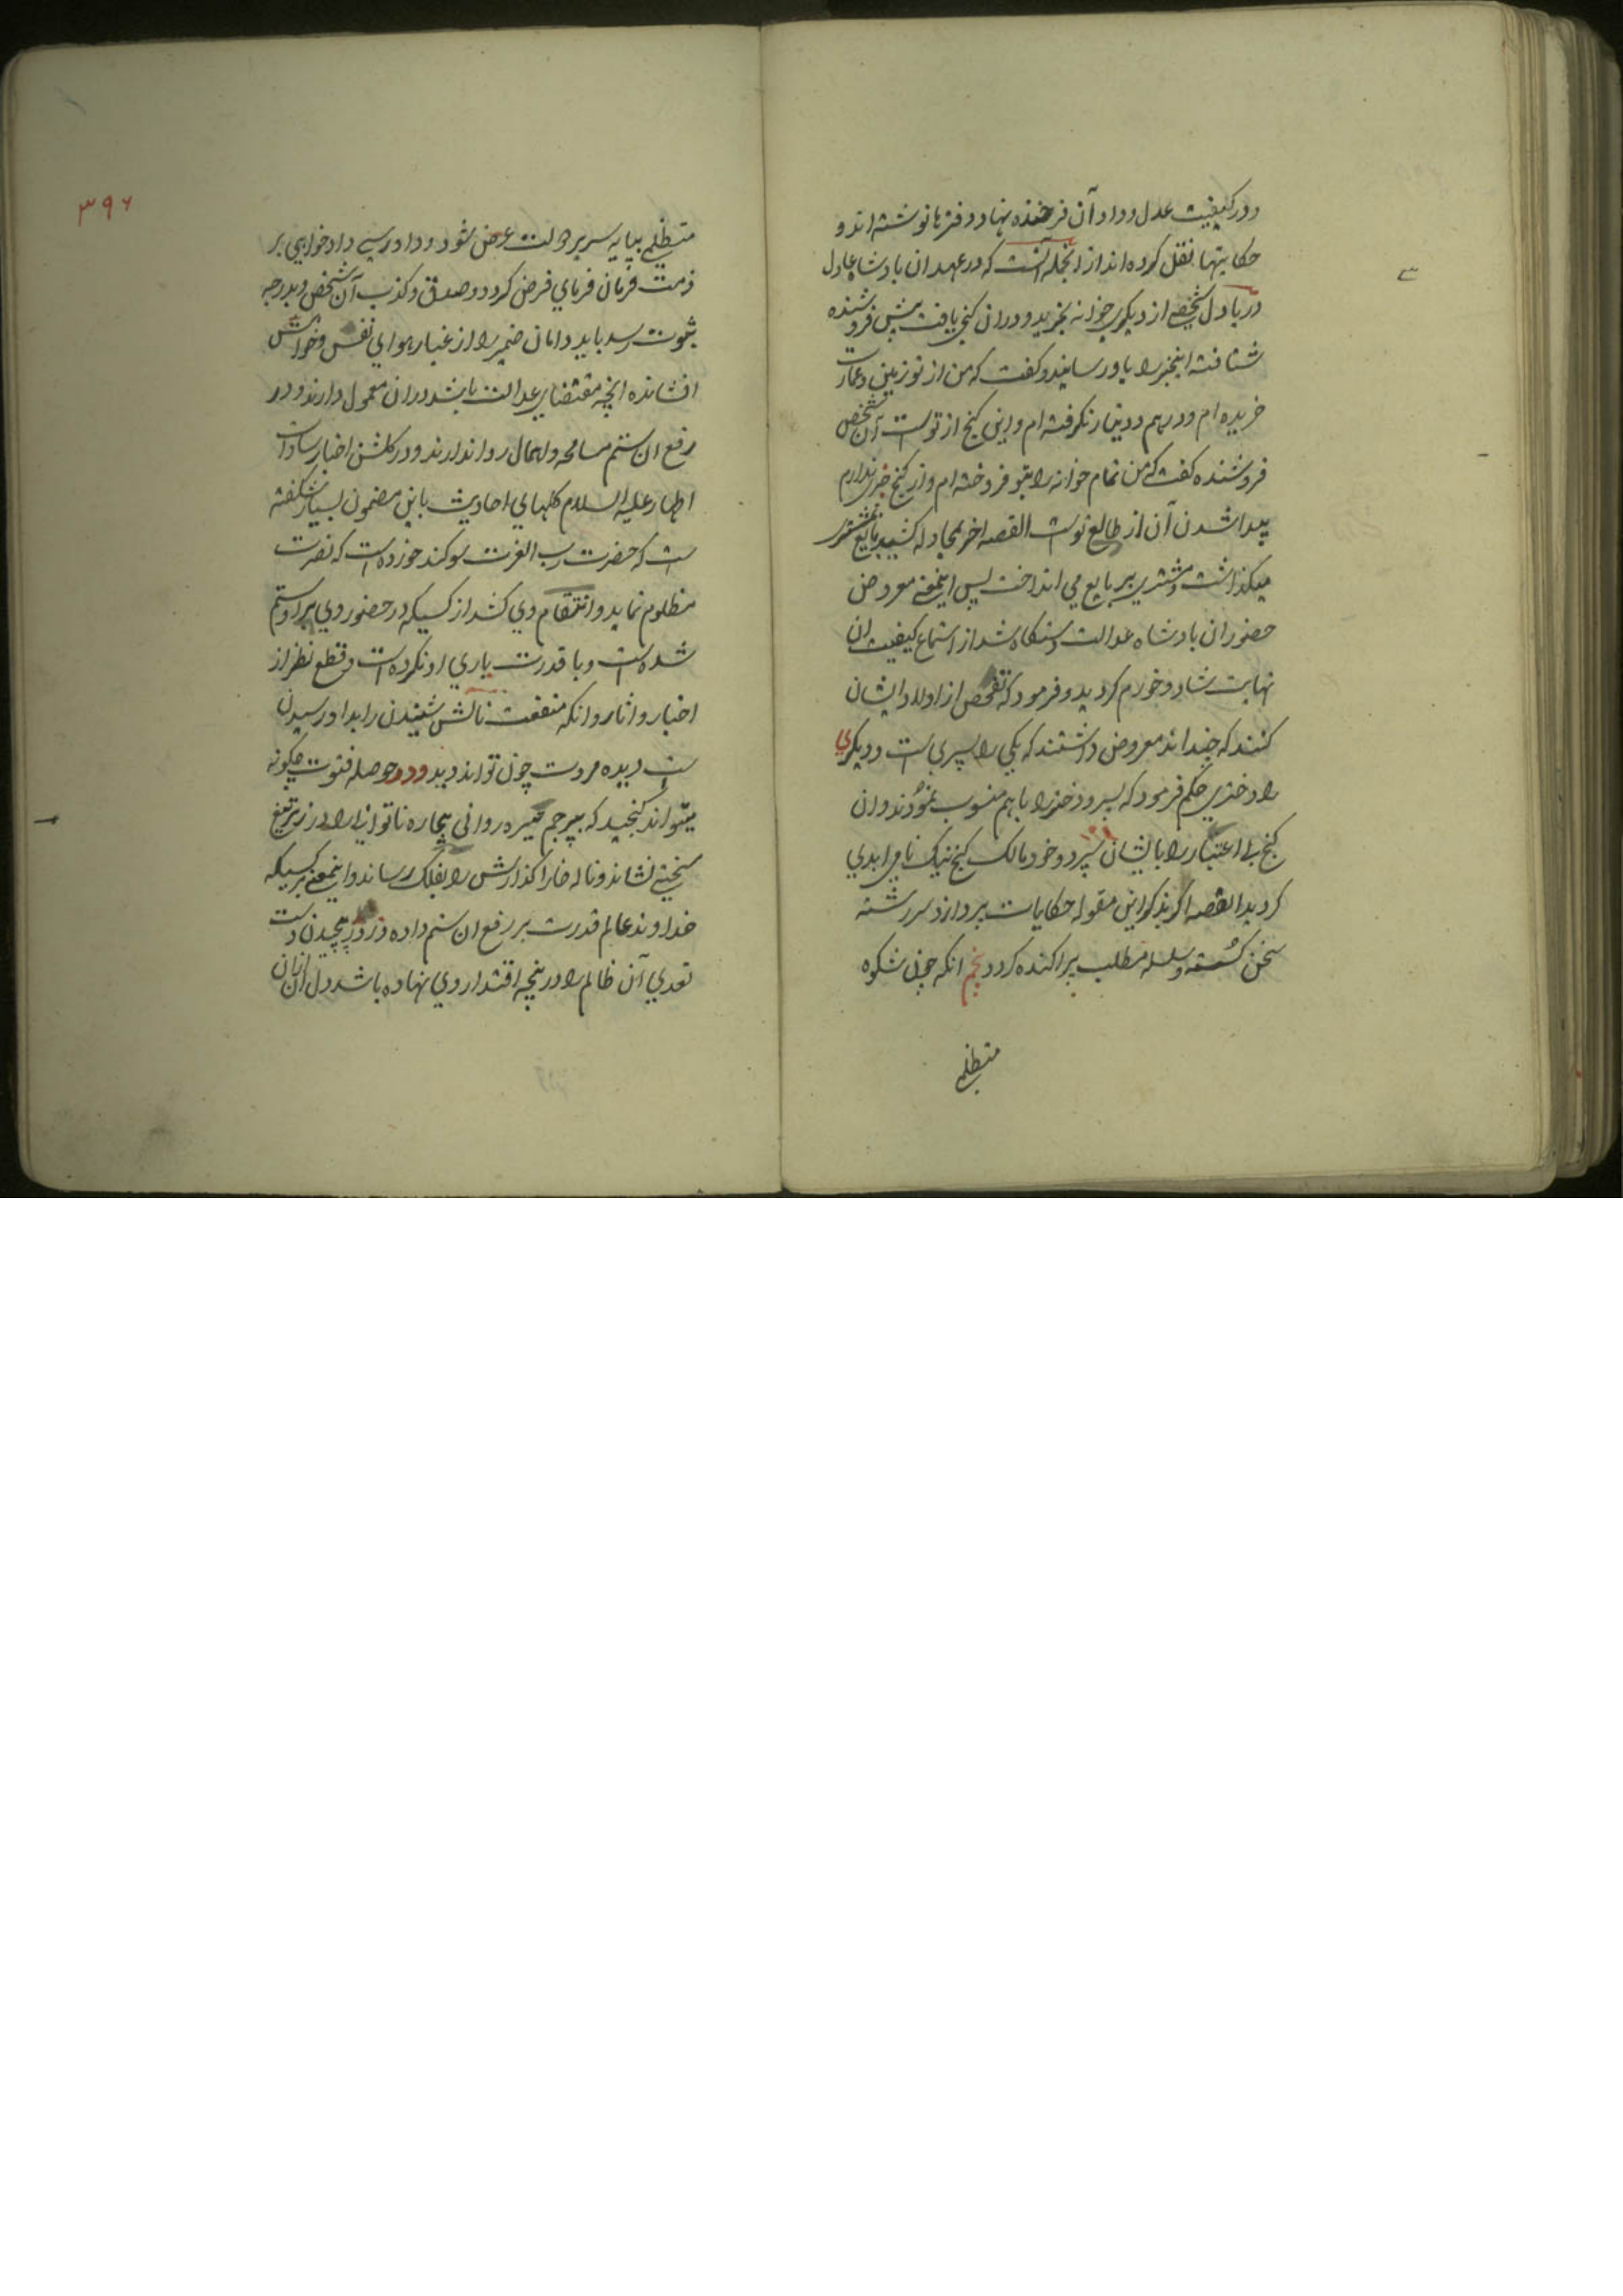 ودر کیفیت عدل وداد آن فرخنده نهاد دفترها نوشته اند و
حکایتها نقل کرده اند از انجمله آنست که در عهد ان پادشاه عادل
دریادل شخصی از دیگری خانه بخرید و دران کنجی یافت پیش فروشنده
شتافته اینخبر را باو رسانید و کفت که من از تو زمین و عمارت
خریده ام و درهم و دینار نکرفته ام و این کنج از توست آن شخص
فروشنده کفت که من تمام خانه را بتو فروخته ام و از کنج خبر ندارم
پیدا شدن آن از طالع توست القصه اخر بمجادله کشید بایع بمشتری
میکذاشت و مشتری ببایع می انداخت پس اینمعنی معروض
حضور ان پادشاه عدالت دستکاه شد از استماع کیفیت ان
نهایت شاد و خورم کردید و فرمود که تفحص از اولاد ایشان
کنند که چند اند معروض داشتند که یکی را پسری است و دیکری
را دختری حکم فرمود که پسر و دختر را باهم منسوب نمودند و ان
کنج بی اعتبار را بایشان سپرد و خود مالک کنج نیک نامی ابدی
کردید القصه اکر بذکر این مقوله حکایات پردازد سررشته
سخن کسسته و سلسله مطلب پراکنده کردد پنجم انکه چون شکوه
متظلمی
۳۹۶
متظلمی بپایه سریر دولت عرض شود و دادرسی دادخواهی بر
ذمت فرمان فرمای فرض کردد و صدق و کذب آن شخص و بدرجه
ثبوت رسد باید دامان ضمیر را از غبار هوای نفس و خواهش
افشانده انچه مقتضای عدالت باشد دران معمول دارند و در
رفع ان ستم مسامحه و اهمال روا ندارند و در کلشن اخبار سادات
اطهار علیه السلام کلهای احادیث باین مضمون بسیار شکفته
است که حضرت رب العزت سوکند خورده است که نصرت
مظلوم نماید و انتقام وی کشد از کسیکه در حضور وی بر او ستم
شده است و با قدرت یاری او نکرده است و قطع نظر از
اخبار و اثار و انکه منفعت نالش شنیدن را بداد رسیدن
است دیده مروت چون تواند دید و در حوصله فتوت چکونه
میتواند کنجید که بیرحم خیره روانی بیچاره ناتوانی را در زیر تیغ
سختی نشاند و ناله خارا کذارش را بفلک رساند و اینمعنی بر کسیکه
خداوند عالم قدرت بر رفع ان ستم داده و زور پیچیدن دست
تعدی آن ظالم را در پنجه اقتدار وی نهاده باشد دل